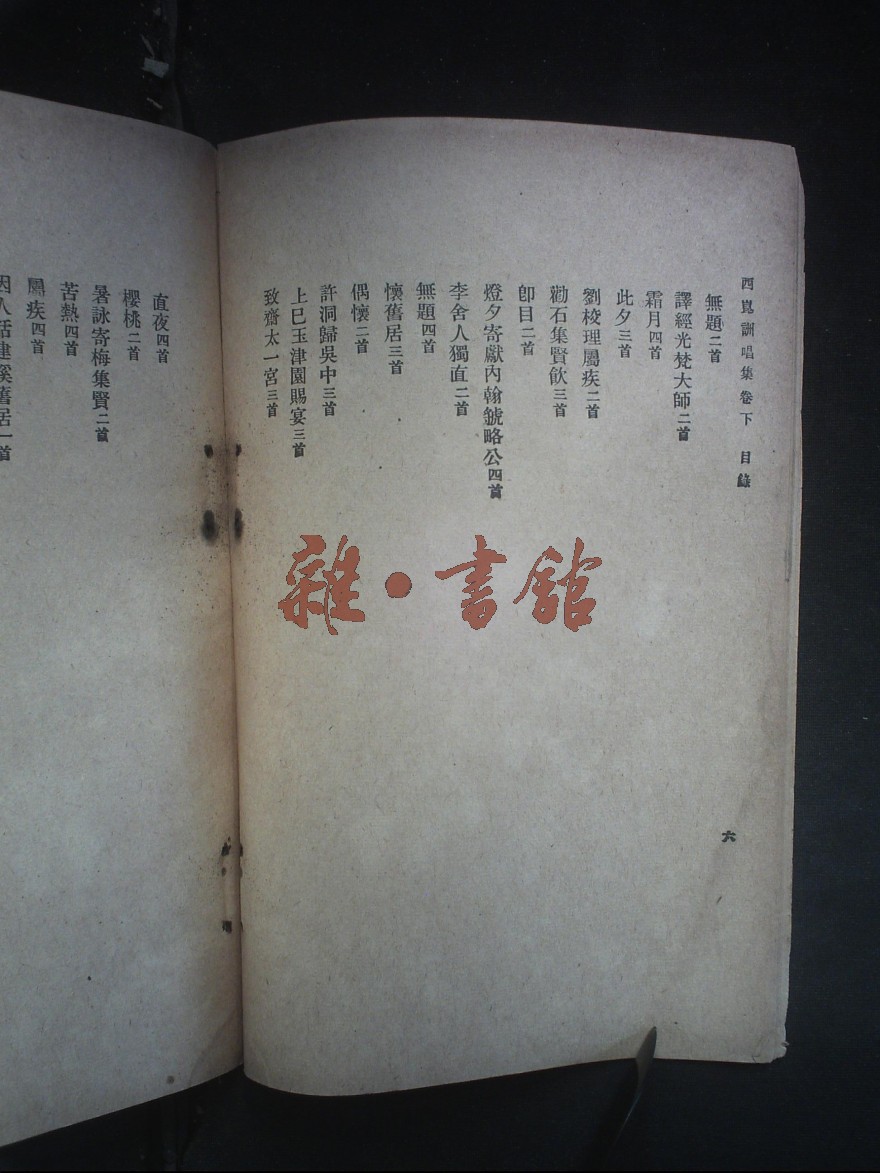 西崑詶唱集卷下 目錄
無題二首
譯經光梵大師二首
霜月四首
此夕三首
劉校理屬疾二首
勸石集賢飲三首
卽目二首
燈夕寄獻內翰虢略公四首
李舍人獨直二首
無題四首
懷舊居三首
偶懷二首
許洞歸吳中三首
上巳玉津園賜宴三首
致齋太一宮三首
六
直夜四首
櫻桃二首
暑詠寄梅集賢二首
苦熱四首
屬疾四首
因人話建溪舊居一首
雜·書館